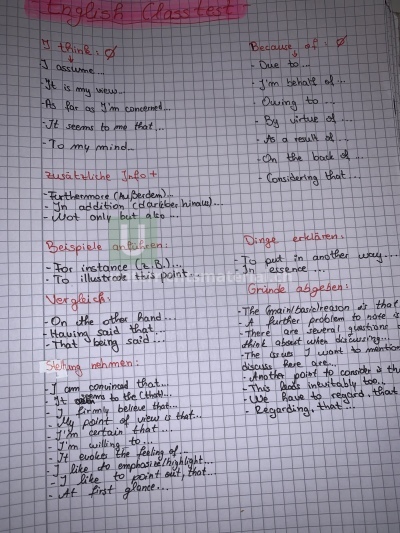 English Classtest
I think: Ø
I assume...
- It is my wew...
- As far as I'm concerned...
- It seems to me that...
- To my mind...
Because of: Ø
- Due to...
- I'm behalf of...
- Owing to...
- By virtue of...
- As a result of...
- On the back of...
- Considering that...
Zusätzliche Info +
- Furthermore (Außerdem)...
- In addition (darüber hinaus)...
- Not only but also...
Beispiele anführen:
- For instance (z.B.)...
- To illustrate this point...
Dinge erklären:
- To put in another way...
- In essence...
Vergleich:
- On the other hand...
- Having said that...
- That being said...
Gründe abgeben:
- The (main/basic)reason is that
- A further problem to note is
- There are several questions
think about when discussing...
- The issues I want to mention
discuss here are...
- Another point to consider is
- This leads inevitably too..
- We have to regard, that
- Regarding, that...
Stellung nehmen:
- I am convinced that...
- It seems to be (that)...
- I firmly believe that...
- My point of view is that...
- I'm certain that...
- I'm willing to...
- It evokes the feeling of...
- I like to emphasize/highlight...
- I like to point out, that...
- At first glance...